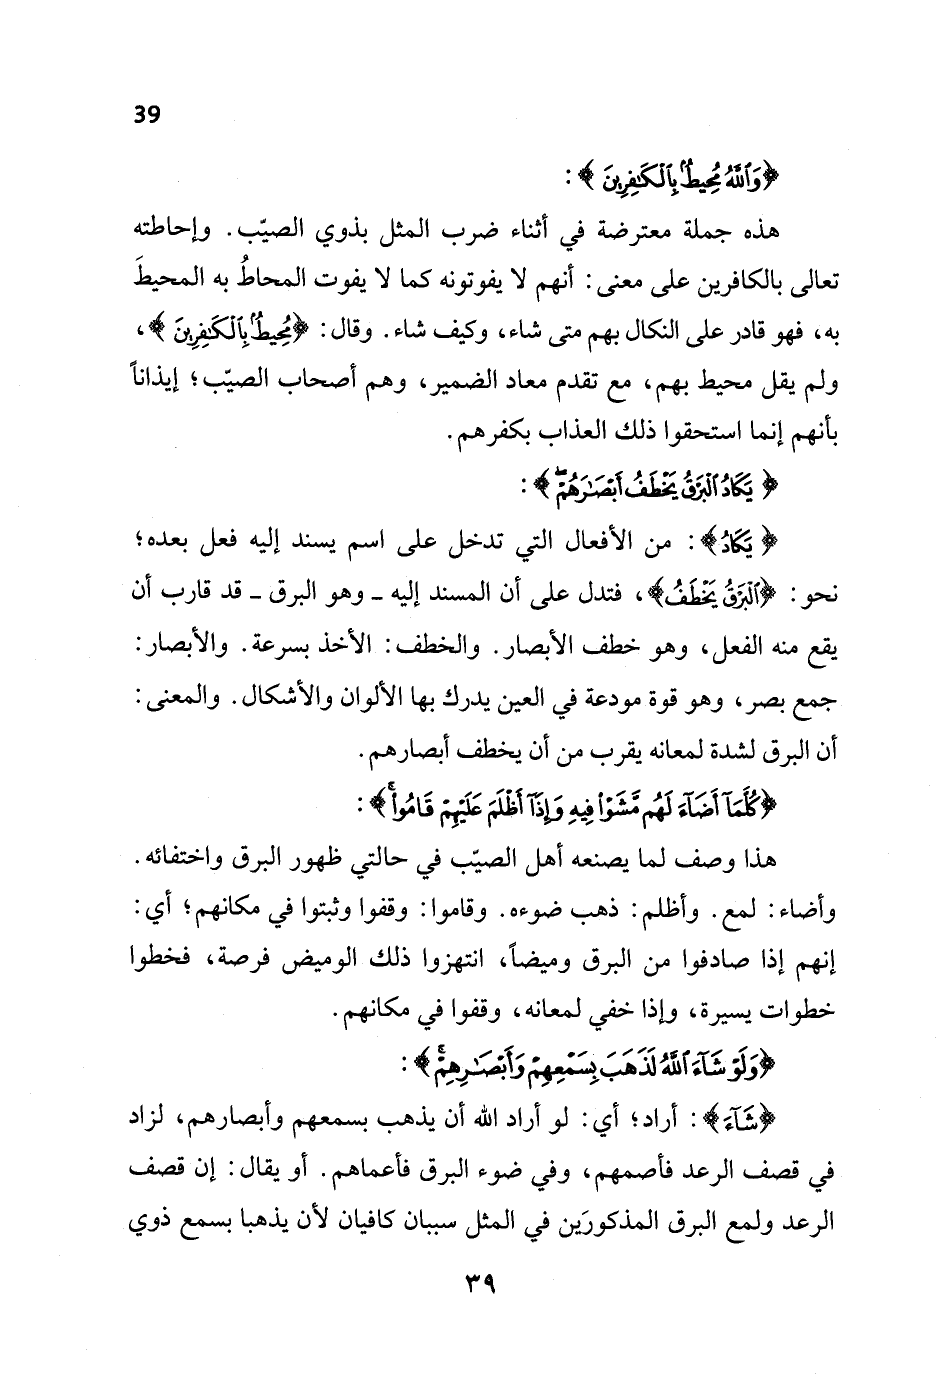 39
﴿وَٱللَّهُ مُحِيطٌۢ بِٱلْكَٰفِرِينَ﴾:
هذه جملة معترضة في أثناء ضرب المثل بذوي الصيّب. وإحاطته
تعالى بالكافرين على معنى: أنهم لا يفوتونه كما لا يفوت المحاطُ به المحيطَ
به، فهو قادر على النكال بهم متى شاء، وكيف شاء. وقال: ﴿مُحِيطٌۢ بِٱلْكَٰفِرِينَ﴾،
ولم يقل محيط بهم، مع تقدم معاد الضمير، وهم أصحاب الصيّب؛ إيذاناً
بأنهم إنما استحقوا ذلك العذاب بكفرهم.
﴿يَكَادُ ٱلْبَرْقُ يَخْطَفُ أَبْصَٰرَهُمْ ۖ﴾:
﴿يَكَادُ﴾: من الأفعال التي تدخل على اسم يسند إليه فعل بعده؛
نحو: ﴿ٱلْبَرْقُ يَخْطَفُ﴾، فتدل على أن المسند إليه ـ وهو البرق ـ قد قارب أن
يقع منه الفعل، وهو خطف الأبصار. والخطف: الأخذ بسرعة. والأبصار:
جمع بصر، وهو قوة مودعة في العين يدرك بها الألوان والأشكال. والمعنى:
أن البرق لشدة لمعانه يقرب من أن يخطف أبصارهم.
﴿كُلَّمَآ أَضَآءَ لَهُم مَّشَوْا۟ فِيهِ وَإِذَآ أَظْلَمَ عَلَيْهِمْ قَامُوا۟ ۚ﴾:
هذا وصف لما يصنعه أهل الصيّب في حالتي ظهور البرق واختفائه.
وأضاء: لمع. وأظلم: ذهب ضوءه. وقاموا: وقفوا وثبتوا في مكانهم؛ أي:
إنهم إذا صادفوا من البرق وميضاً، انتهزوا ذلك الوميض فرصة، فخطوا
خطوات يسيرة، وإذا خفي لمعانه، وقفوا في مكانهم.
﴿وَلَوْ شَآءَ ٱللَّهُ لَذَهَبَ بِسَمْعِهِمْ وَأَبْصَٰرِهِمْ ۚ﴾:
﴿شَآءَ﴾: أراد؛ أي: لو أراد الله أن يذهب بسمعهم وأبصارهم، لزاد
في قصف الرعد فأصمهم، وفي ضوء البرق فأعماهم. أو يقال: إن قصف
الرعد ولمع البرق المذكورَين في المثل سببان كافيان لأن يذهبا بسمع ذوي
٣٩